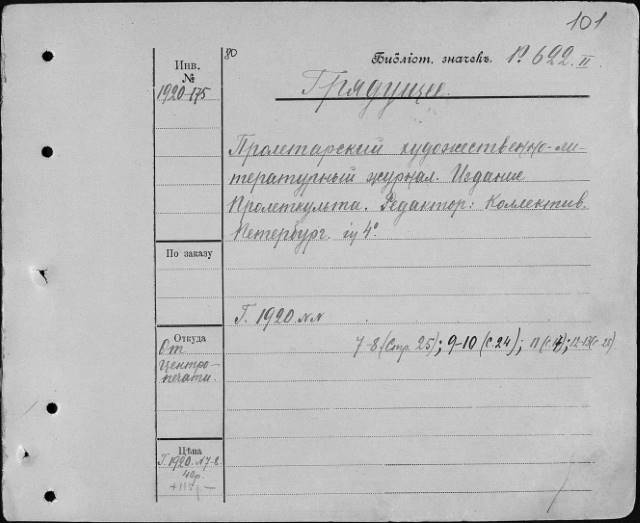 101
80
Библіот. значекъ 1º 622 II
Инв. №
1920-175
Грядущее.
Пролетарский художественно-ли-
тературный журнал. Издание
Пролеткульта. Редактор: Коллектив.
Петербург. in 4º.
По заказу
Г. 1920. №№
7-8 (Стр. 25); 9-10 (с. 24); 11 (с. 17); 12-13 (с. 25)
Откуда
От
Центро-
печати.
Цѣна
Г. 1920. №7-8.
40р.